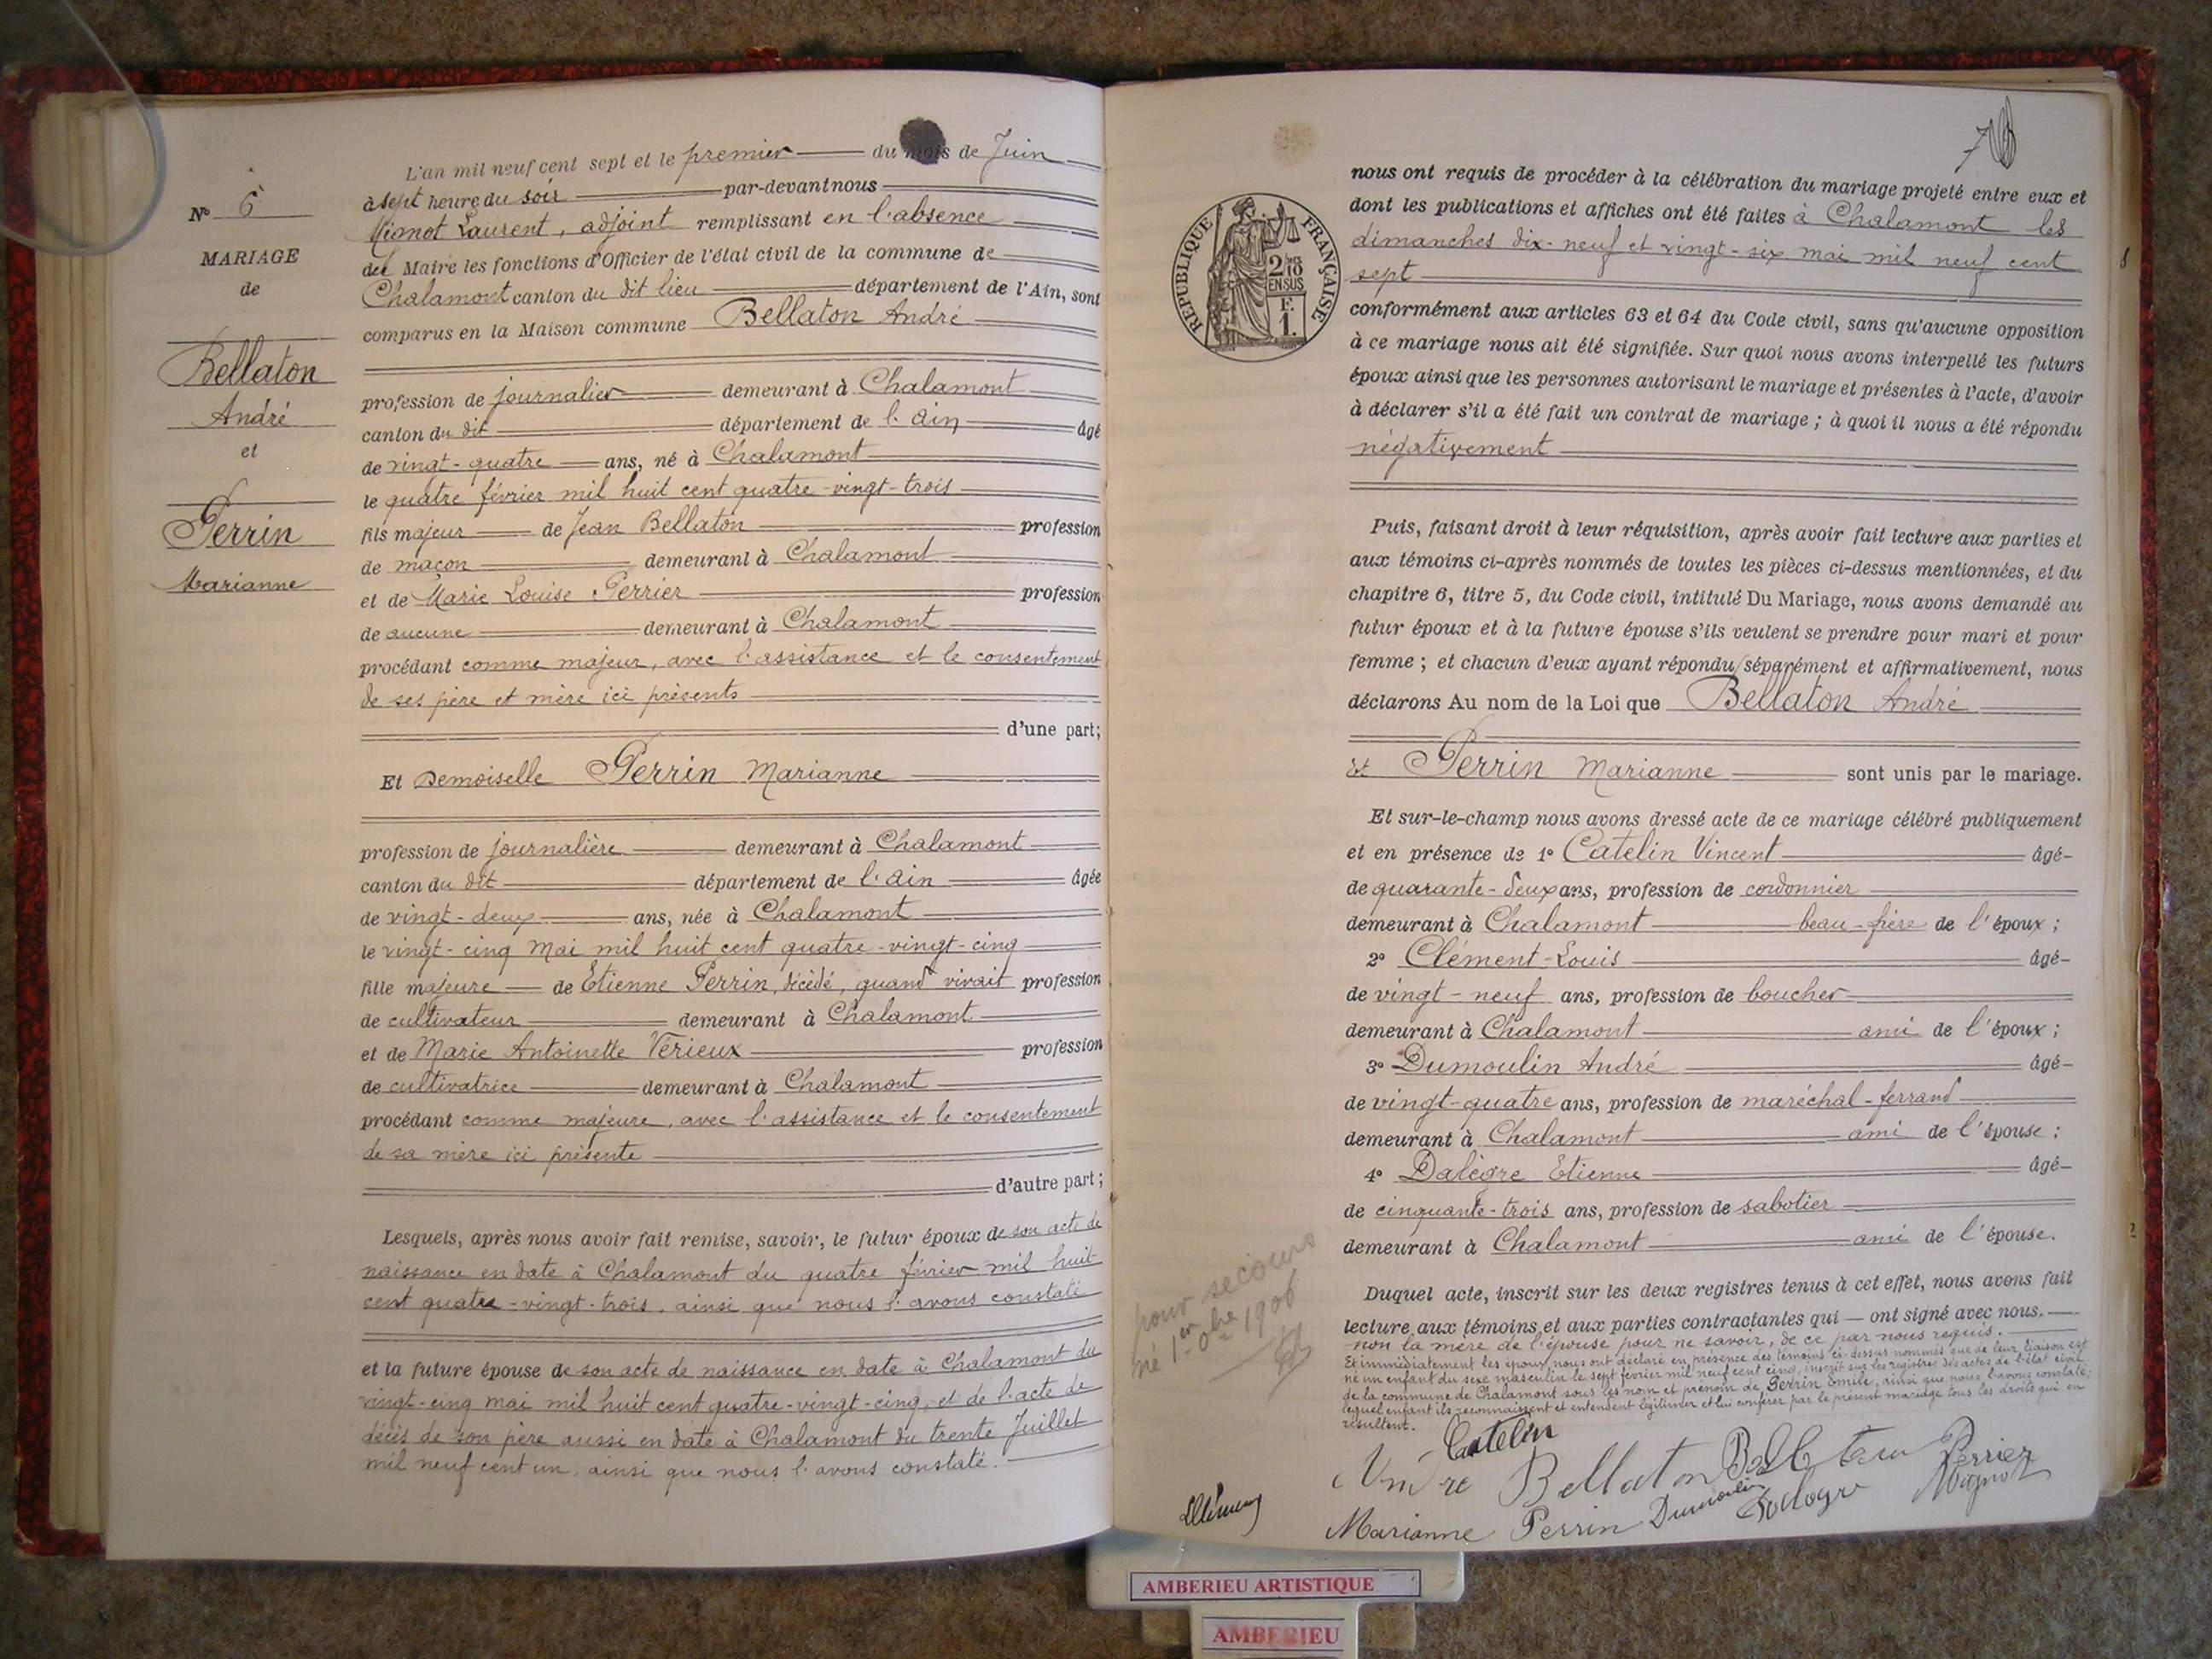 N° 6
MARIAGE
de
Bellaton
André
et
Perrin
Marianne
L'an mil neuf cent sept et le premier du mois de Juin
à sept heure du soir par-devant nous
Mignot Laurent, adjoint remplissant en l'absence
du Maire les fonctions d'Officier de l'état civil de la commune de
Chalamont canton du dit lieu département de l'Ain, sont
comparus en la Maison commune Bellaton André
profession de journalier demeurant à Chalamont
canton du dit département de l'Ain âgé
de vingt-quatre ans, né à Chalamont
le quatre février mil huit cent quatre-vingt-trois
fils majeur de Jean Bellaton profession
de maçon demeurant à Chalamont
et de Marie Louise Perrier profession
de aucune demeurant à Chalamont
procédant comme majeur, avec l'assistance et le consentement
de ses père et mère ici présents
d'une part;
Et Demoiselle Perrin Marianne
profession de journalière demeurant à Chalamont
canton du dit département de l'Ain âgée
de vingt-deux ans, née à Chalamont
le vingt-cinq Mai mil huit cent quatre-vingt-cinq
fille majeure de Etienne Perrin, décédé, quand vivait profession
de cultivateur demeurant à Chalamont
et de Marie Antoinette Vérieux profession
de cultivatrice demeurant à Chalamont
procédant comme majeure, avec l'assistance et le consentement
de sa mère ici présente
d'autre part;
Lesquels, après nous avoir fait remise, savoir, le futur époux de son acte de
naissance en date à Chalamont du quatre février mil huit
cent quatre-vingt-trois, ainsi que nous l'avons constaté
et la future épouse de son acte de naissance en date à Chalamont du
vingt-cinq mai mil huit cent quatre-vingt-cinq, et de l'acte de
décès de son père aussi en date à Chalamont du trente Juillet
mil neuf cent un, ainsi que nous l'avons constaté.
7
RÉPUBLIQUE FRANÇAISE
2/10
EN SUS
F.
1.
nous ont requis de procéder à la célébration du mariage projeté entre eux et
dont les publications et affiches ont été faites à Chalamont les
dimanches dix-neuf et vingt-six mai mil neuf cent
sept
conformément aux articles 63 et 64 du Code civil, sans qu'aucune opposition
à ce mariage nous ait été signifiée. Sur quoi nous avons interpellé les futurs
époux ainsi que les personnes autorisant le mariage et présentes à l'acte, d'avoir
à déclarer s'il a été fait un contrat de mariage ; à quoi il nous a été répondu
négativement
Puis, faisant droit à leur réquisition, après avoir fait lecture aux parties et
aux témoins ci-après nommés de toutes les pièces ci-dessus mentionnées, et du
chapitre 6, titre 5, du Code civil, intitulé Du Mariage, nous avons demandé au
futur époux et à la future épouse s'ils veulent se prendre pour mari et pour
femme ; et chacun d'eux ayant répondu séparément et affirmativement, nous
déclarons Au nom de la Loi que Bellaton André
Et Perrin Marianne sont unis par le mariage.
Et sur-le-champ nous avons dressé acte de ce mariage célébré publiquement
et en présence de 1° Catelin Vincent âgé
de quarante-deux ans, profession de cordonnier
demeurant à Chalamont beau-frère de l'époux ;
2° Clément-Louis âgé
de vingt-neuf ans, profession de boucher
demeurant à Chalamont ami de l'époux ;
3° Dumoulin André âgé
de vingt-quatre ans, profession de maréchal-ferrand
demeurant à Chalamont ami de l'épouse ;
4° Dalègre Etienne âgé
de cinquante-trois ans, profession de sabotier
demeurant à Chalamont ami de l'épouse.
Duquel acte, inscrit sur les deux registres tenus à cet effet, nous avons fait
lecture aux témoins et aux parties contractantes qui — ont signé avec nous.
non la mère de l'épouse pour ne savoir, de ce par nous requis.
Et immédiatement les époux nous ont déclaré en présence des témoins ci-dessus nommés que de leur liaison est
né un enfant du sexe masculin le sept février mil neuf cent cinq, inscrit sur les registres des actes de l'état civil
de la commune de Chalamont sous les nom et prénom de Perrin Emile, ainsi que nous l'avons constaté;
lequel enfant ils reconnaissent et entendent légitimer et lui conférer par le présent mariage tous les droits qui en
résultent.
pour secours
né 1er 1906
Catelin
André Bellaton Bellaton Perrier
Clément Marianne Perrin Dumoulin Dalegre Mignot
AMBERIEU ARTISTIQUE
AMBERIEU